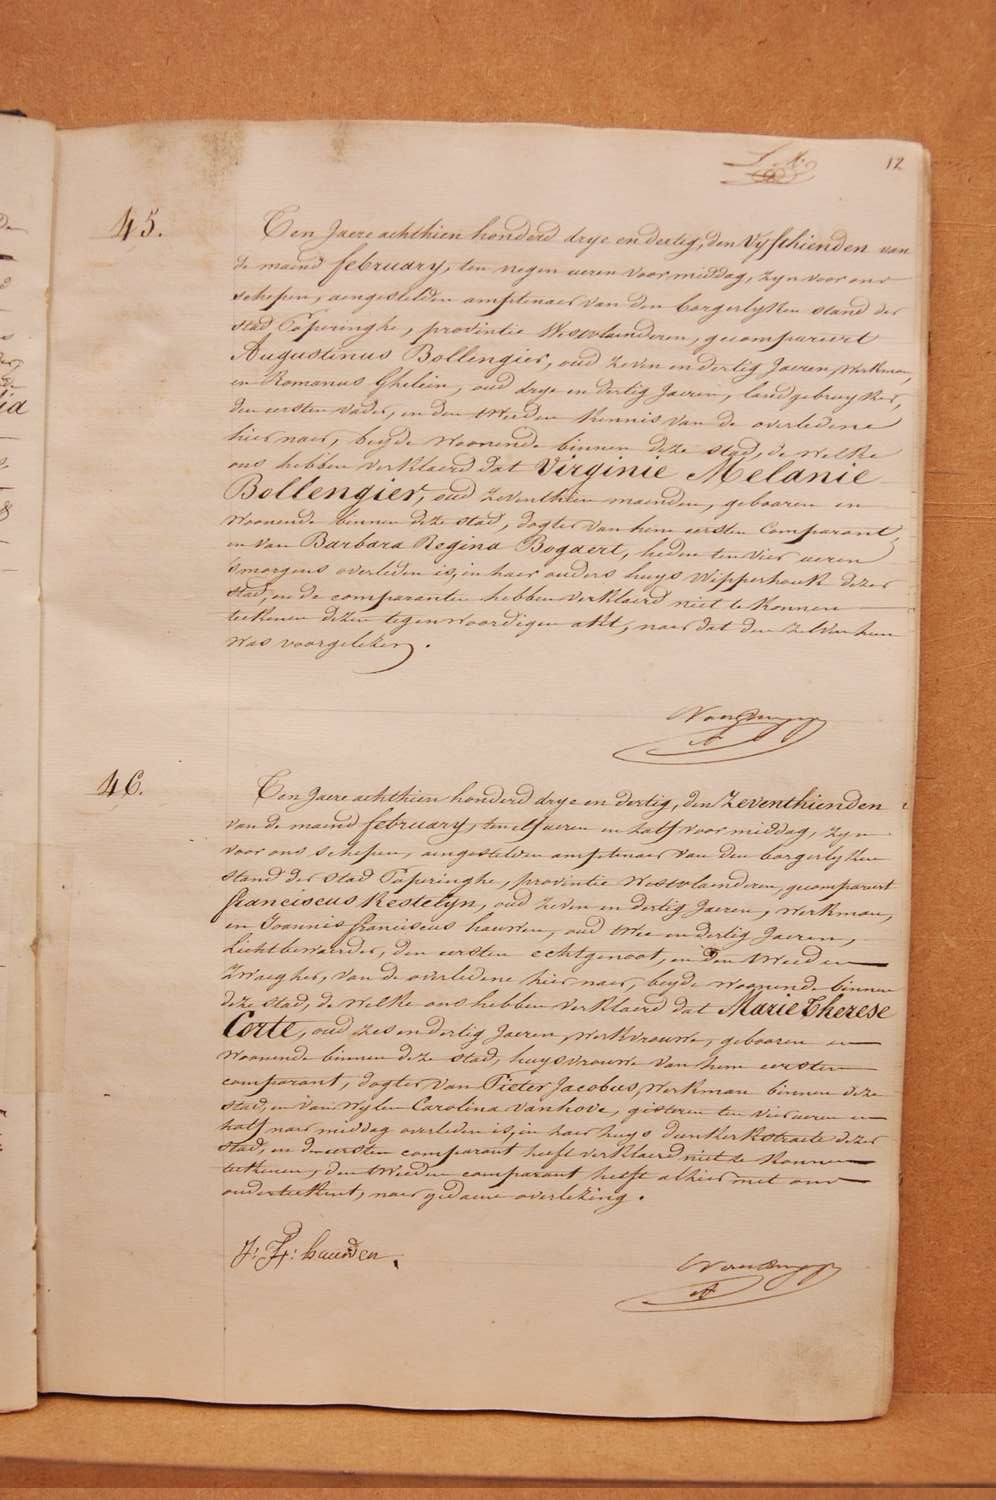 12
45.
Ten Jaere achthien honderd drye en dertig, den Vyfthienden van
de maend february, ten negen ueren voormiddag, zyn voor ons
schepen, aengestelden amptenaer van den borgerlyken stand der
stad Poperinghe, provintie Westvlaenderen, gecompareert
Augustinus Bollengier, oud zeven en dertig Jaeren, Werkman,
en Romanus Ghelein, oud drye en dertig Jaeren, landgebruyker,
den eersten vader, en den tweeden kennis van de overledene
hier naer, beyde woonende binnen deze stad, de welke
ons hebben verklaerd dat Virginie Melanie
Bollengier, oud zeventhien maenden, gebooren en
woonende binnen deze stad, dogter van hem eersten Comparant,
en van Barbara Regina Bogaert, heden ten vier ueren
smorgens overleden is, in haer ouders huys Wipperhoek dezer
stad, en de comparanten hebben verklaerd niet te konnen
teekenen dezen tegenwoordigen akt, naer dat den zelven hun
was voorgelezen.
46.
Ten Jaere achthien honderd drye en dertig, den Zeventhienden
van de maend february, ten elf ueren en half voormiddag, zyn
voor ons schepen, aengestelden amptenaer van den borgerlyken
stand der stad Poperinghe, provintie Westvlaenderen, gecompareert
franciscus Kestelyn, oud zeven en dertig Jaeren, Werkman,
en Joannis franciscus hauwen, oud twee en dertig Jaeren,
Lichtbewaerder, den eersten echtgenoot, en den tweeden
Zwaegher, van de overledene hier naer, beyde woonende binnen
deze stad, de welke ons hebben verklaerd dat Marie Therese
Corte, oud zes en dertig Jaeren, Werkvrouwe, gebooren en
woonende binnen deze stad, huysvrouwe van hem eersten
comparant, dogter van Pieter Jacobus, Werkman binnen deze
stad, en van Wylen Carolina Vanhove, gisteren ten vier ueren en
half naer middag overleden is, in haer huys dunkerkstraete dezer
stad, en den eersten comparant heeft verklaerd niet te konnen
teekenen, den tweeden comparant heeft alhier met ons
onderteekent, naer gedaene overlezing.